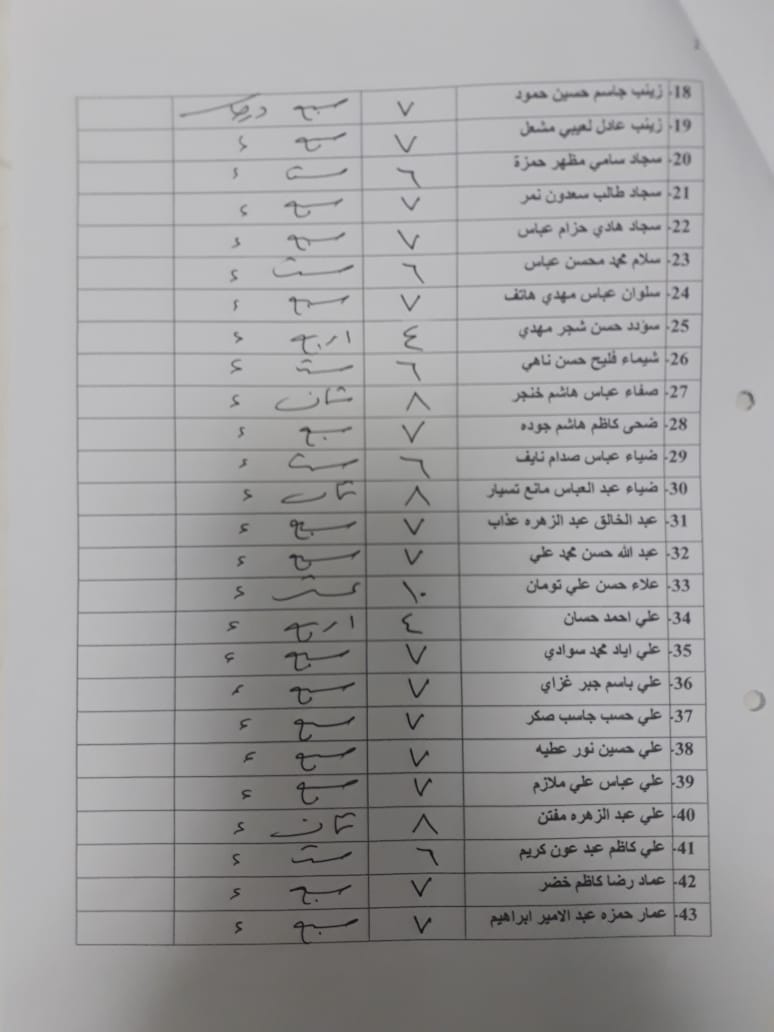 18- زينب جاسم حسين حمود ٧ سبع درجات
19- زينب عادل لعيبي مشعل ٧ سبع ء
20- سجاد سامي مظهر حمزة ٦ ست ء
21- سجاد طالب سعدون نمر ٧ سبع ء
22- سجاد هادي حزام عباس ٧ سبع ء
23- سلام محمد محسن عباس ٦ ست ء
24- سلوان عباس مهدي هاتف ٧ سبع ء
25- سؤدد حسن شجر مهدي ٤ اربع ء
26- شيماء فليح حسن ناهي ٦ ست ء
27- صفاء عباس هاشم خنجر ٨ ثمان ء
28- ضحى كاظم هاشم جوده ٧ سبع ء
29- ضياء عباس صدام نايف ٦ ست ء
30- ضياء عبد العباس مانع تسيار ٨ ثمان ء
31- عبد الخالق عبد الزهره عذاب ٧ سبع ء
32- عبد الله حسن محمد علي ٧ سبع ء
33- علاء حسن علي تومان ١٠ عشر ء
34- علي احمد حسان ٤ اربع ء
35- علي اياد محمد سوادي ٧ سبع ء
36- علي باسم جبر غزاي ٧ سبع ء
37- علي حسب جاسب صكر ٧ سبع ء
38- علي حسين نور عطيه ٧ سبع ء
39- علي عباس علي ملازم ٧ سبع ء
40- علي عبد الزهره مفتن ٨ ثمان ء
41- علي كاظم عبد عون كريم ٦ ست ء
42- عماد رضا كاظم خضر ٧ سبع ء
43- عمار حمزه عبد الامير ابراهيم ٧ سبع ء